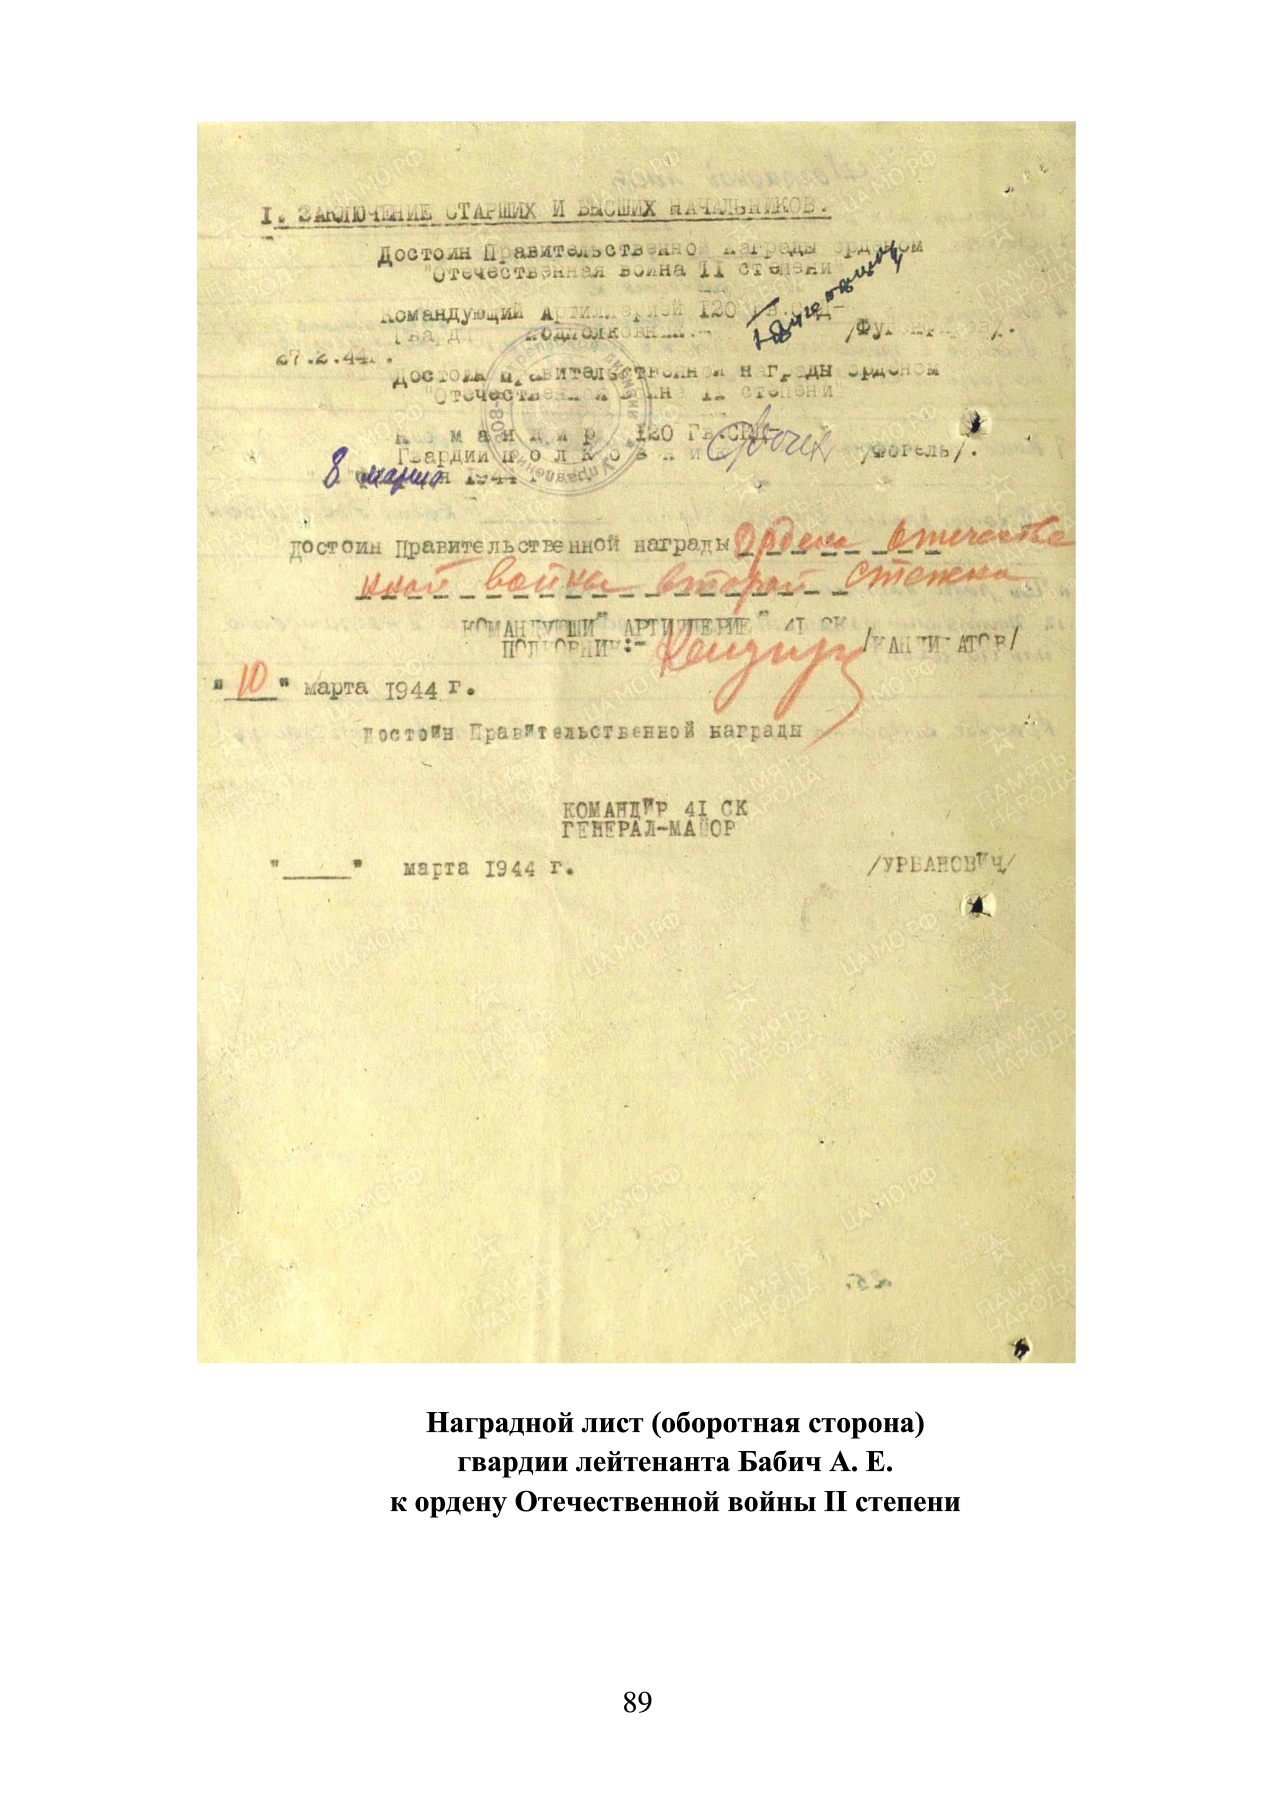 I. ЗАКЛЮЧЕНИЕ СТАРШИХ И ВЫСШИХ НАЧАЛЬНИКОВ.
Достоин Правительственной награды орденом
"Отечественная война II степени"
Командующий Артиллерией 120 Гв.СД-
Гвард. подполковник.-
27.2.44г.
Достоин Правительственной награды орденом
"Отечественная война II степени"
К о м а н д и р 120 Гв.СКД-
Гвардии п о л к о в н и к /Фогель/.
8 марта 1944 г
Достоин Правительственной награды Ордена отечестве
нной война второй степени
КОМАНДУЮЩИЙ АРТИЛЛЕРИЕЙ 41 СК
ПОЛКОВНИК:-
"10" марта 1944 г.
Достоин Правительственной награды
КОМАНДИР 41 СК
ГЕНЕРАЛ-МАЙОР
"____" марта 1944 г. /УРБАНОВИЧ/
Наградной лист (оборотная сторона)
гвардии лейтенанта Бабич А. Е.
к ордену Отечественной войны II степени
89